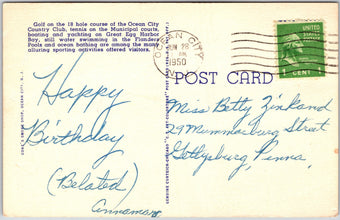 Golf on the 18 hole course of the Ocean City
Country Club, tennis on the Municipal courts,
boating and yachting on Great Egg Harbor
Bay, still water swimming in the Flanders
Pools and ocean bathing are among the many
alluring sporting activities offered visitors.
Happy
Birthday
(Belated)
Annamae
OCEAN CITY
JUN 28
1950
1 CENT
POST CARD
Miss Betty Zinkand
29 Mummasburg Street
Gettysburg, Penna.